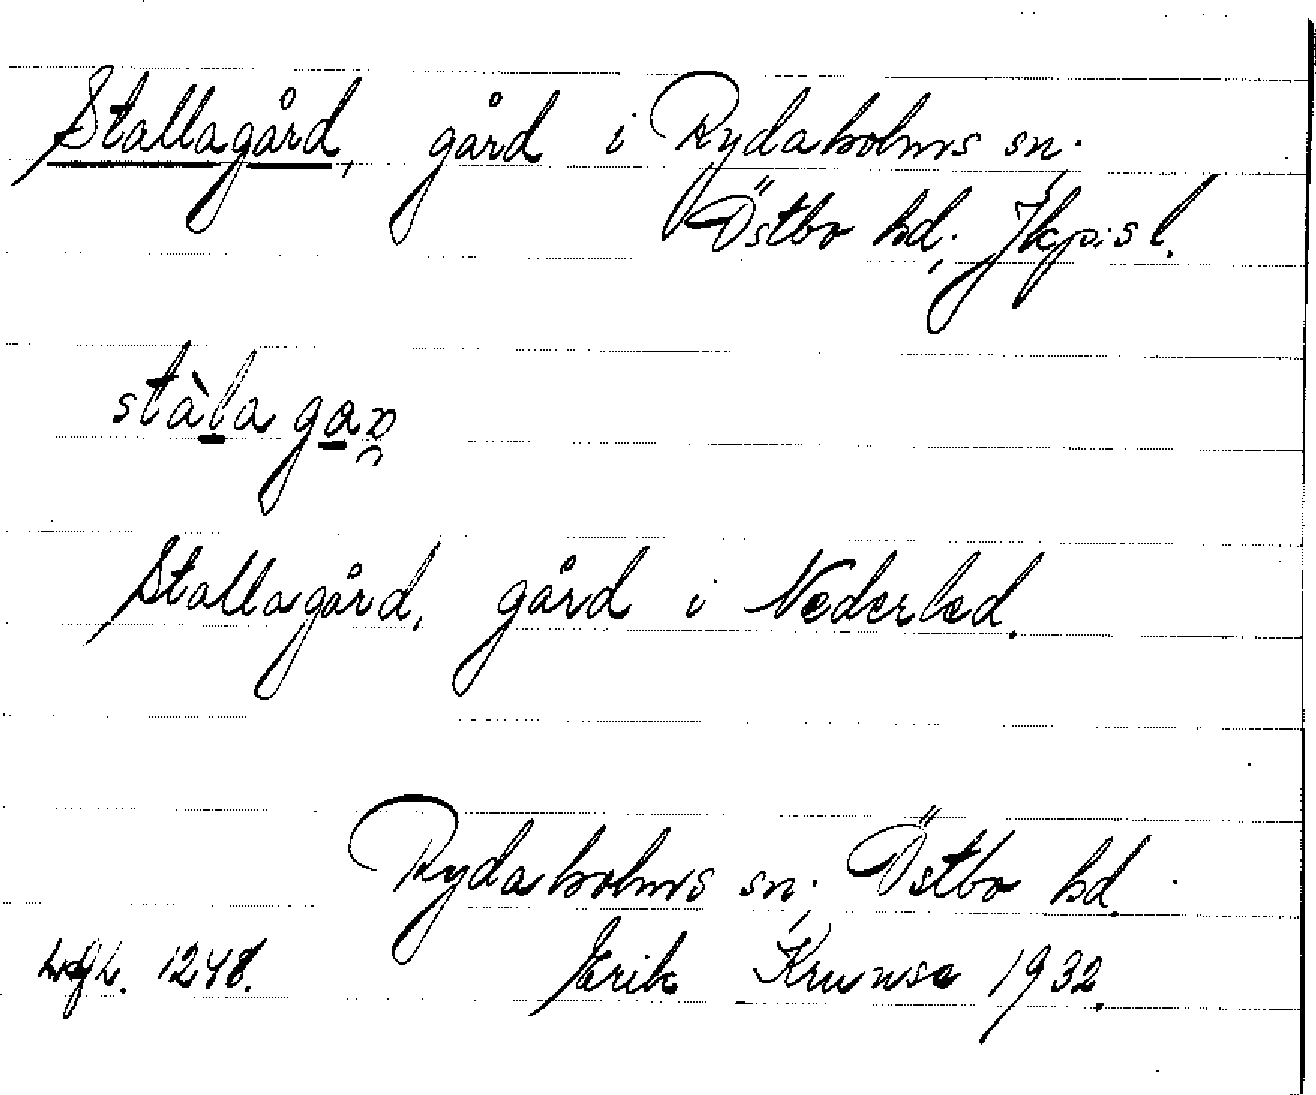 Stallagård, gård i Rydaholms sn.
Östbo hd, Jkpis l.
stàla gaꞃ
Stallagård, gård i Nederled.
Rydaholms sn, Östbo hd.
1248. Erik Krunse 1932.